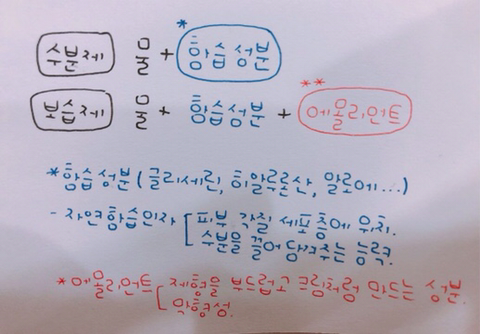 *
수분제 물 + 함습성분
**
보습제 물 + 함습성분 + 에몰리언트
*함습성분 (글리세린, 히알루론산, 알로에...)
- 자연함습인자 [ 피부 각질 세포층에 위치.
수분을 끌어당겨주는 능력.
*에몰리언트 [ 제형을 부드럽고 크림처럼 만드는 성분.
막형성.